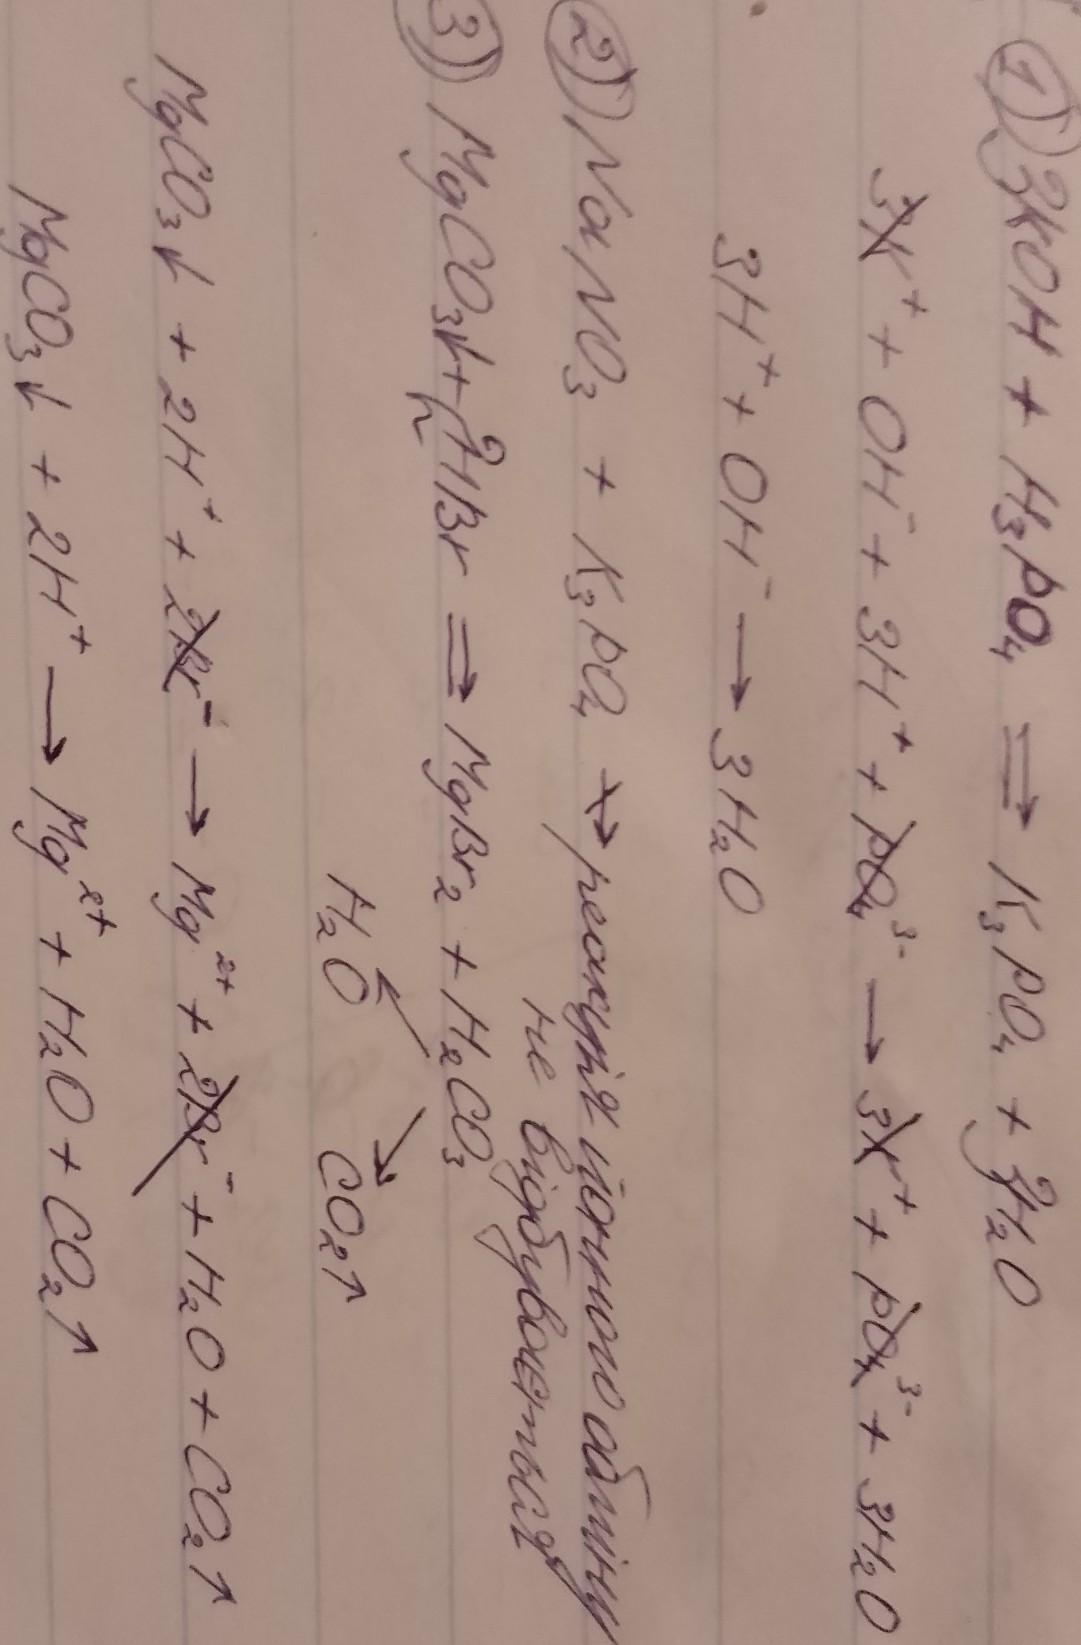 ① 3KOH + H₃PO₄ ⇒ K₃PO₄ + 3H₂O
3K⁺ + OH⁻ + 3H⁺ + PO₄³⁻ → 3K⁺ + PO₄³⁻ + 3H₂O
3H⁺ + OH⁻ → 3H₂O
② NaNO₃ + K₃PO₄ ↛ реакція йонного обміну
не відбувається
③ MgCO₃↓ + 2HBr ⇒ MgBr₂ + H₂CO₃
H₂O CO₂↑
MgCO₃↓ + 2H⁺ + 2Br⁻ → Mg²⁺ + 2Br⁻ + H₂O + CO₂↑
MgCO₃↓ + 2H⁺ → Mg²⁺ + H₂O + CO₂↑